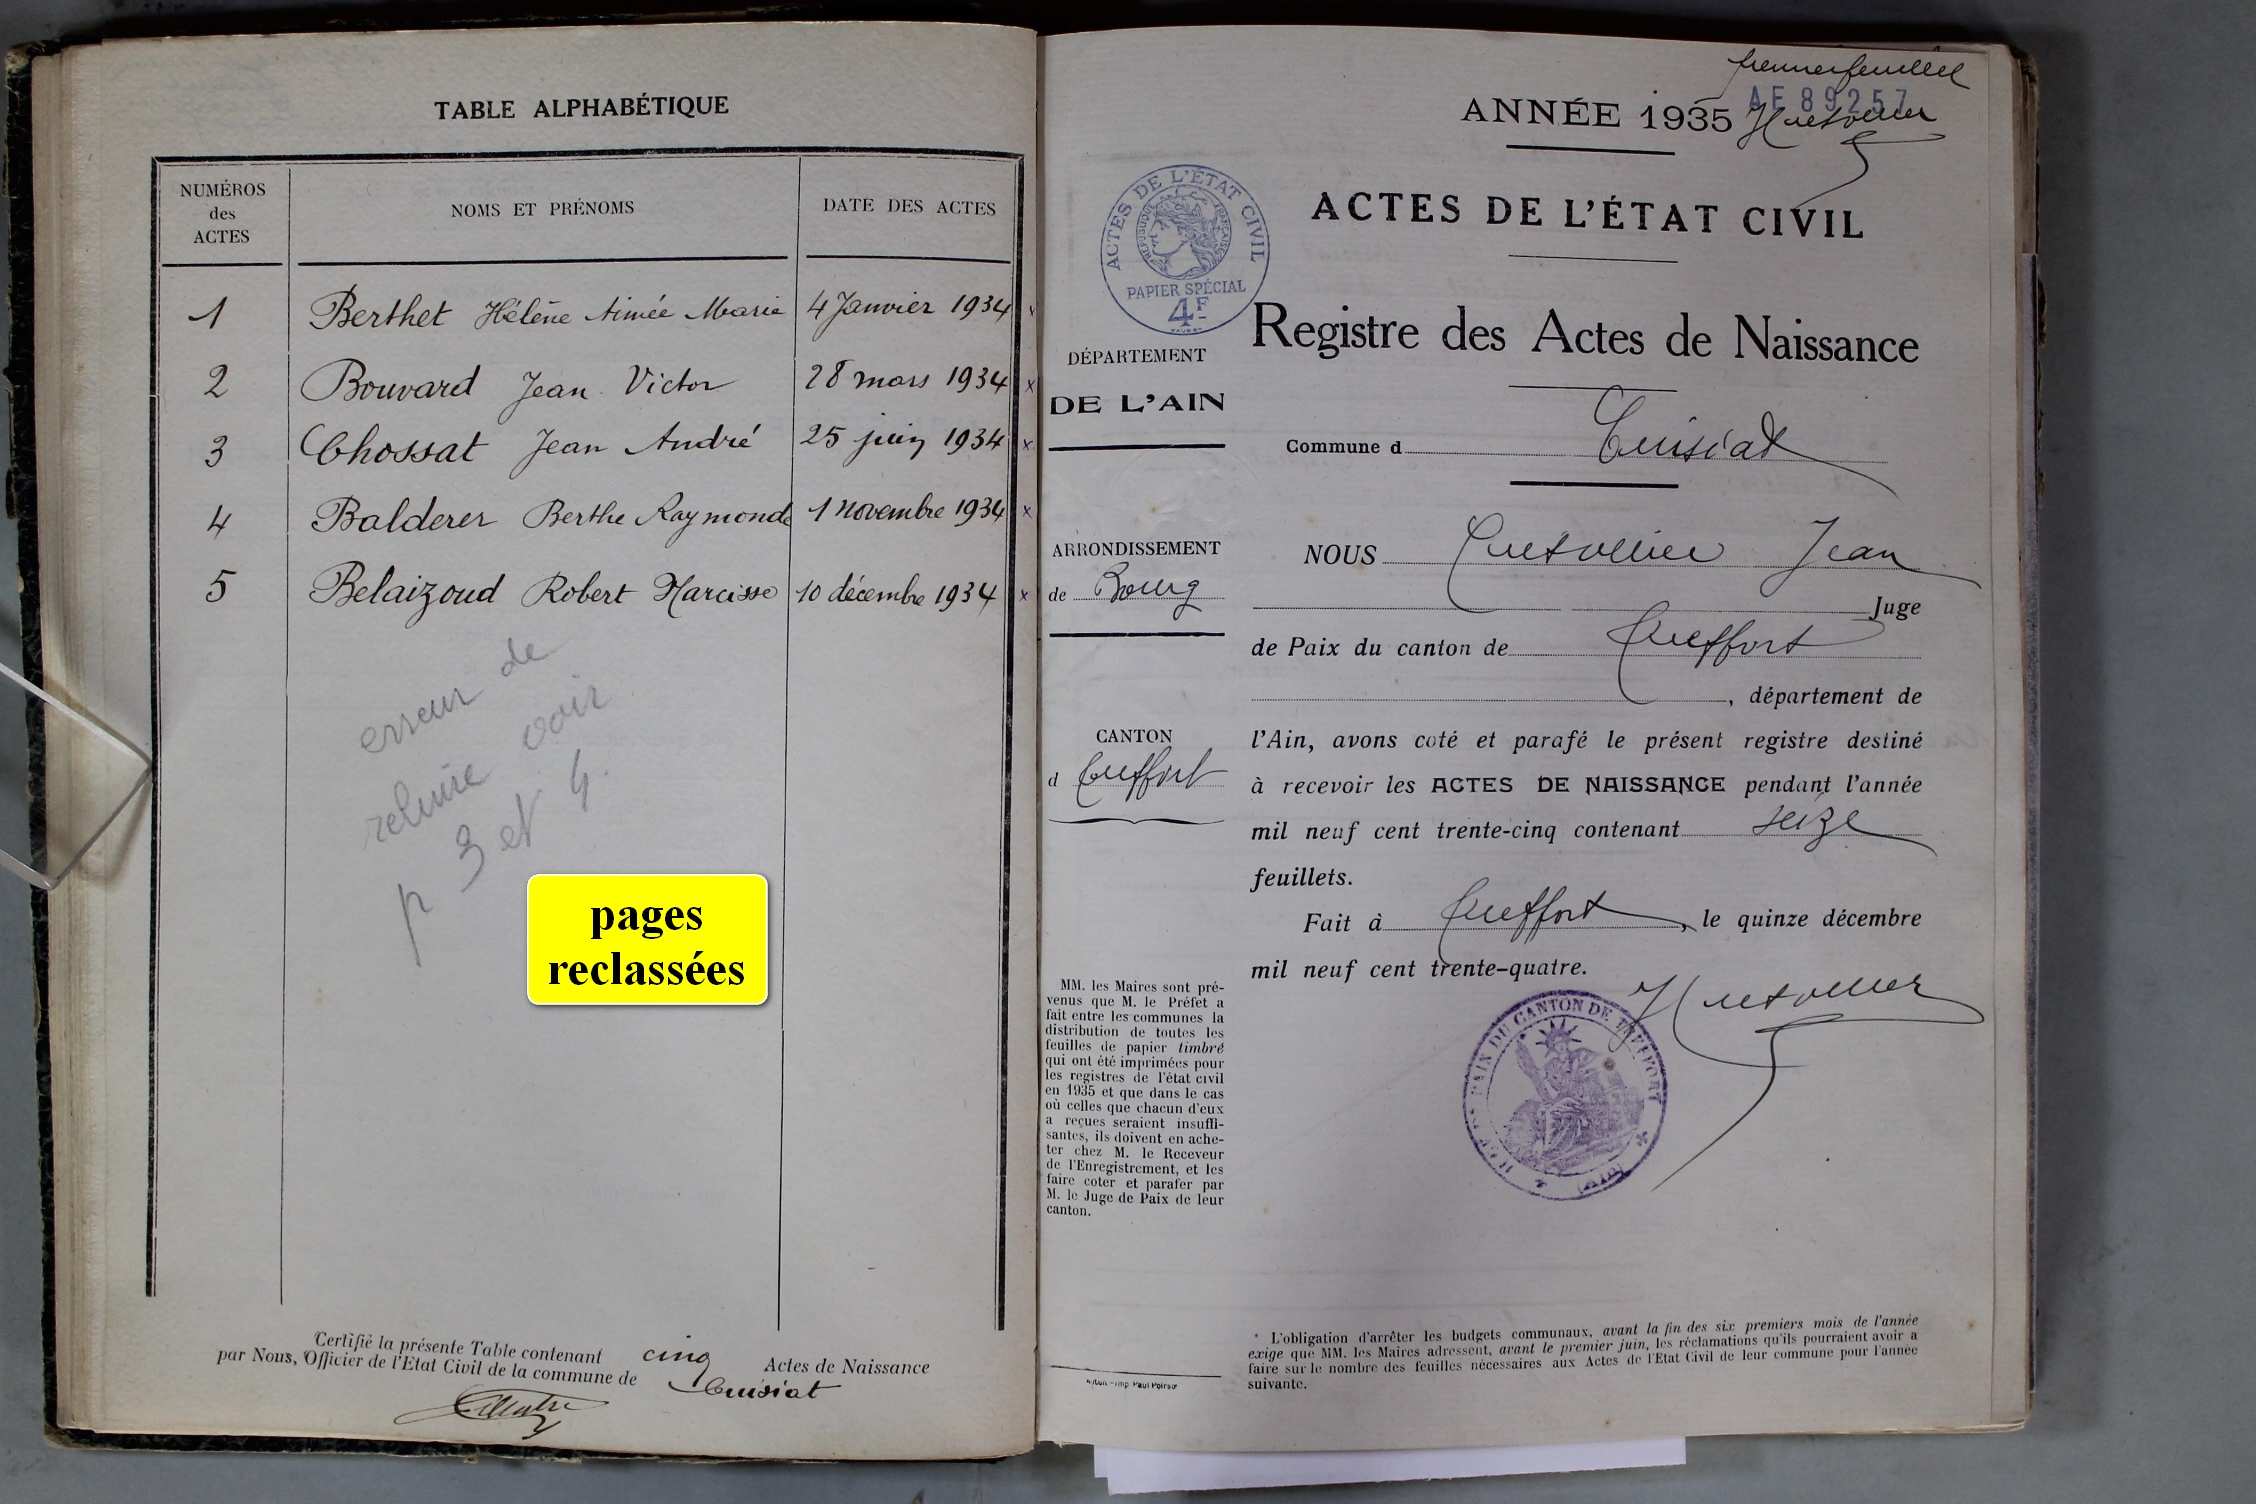 TABLE ALPHABÉTIQUE
NUMÉROS
des
ACTES
NOMS ET PRÉNOMS
DATE DES ACTES
1 Berthet Hélène Aimée Marie 4 Janvier 1934
2 Bouvard Jean Victor 28 mars 1934
3 Chossat Jean André 25 juin 1934
4 Balderer Berthe Raymonde 1 novembre 1934
5 Belaizoud Robert Narcisse 10 décembre 1934
erreur de
reliure voir
p 3 et 4.
pages
reclassées
Certifié la présente Table contenant cinq Actes de Naissance
par Nous, Officier de l'Etat Civil de la commune de Cuisiat
premier feuillet
AE 89257
ANNÉE 1935
ACTES DE L'ÉTAT CIVIL
ACTES DE L'ÉTAT CIVIL
RÉPUBLIQUE FRANÇAISE
PAPIER SPÉCIAL
4F
Registre des Actes de Naissance
DÉPARTEMENT
DE L'AIN
Commune d Cuisiat
ARRONDISSEMENT
de Bourg
CANTON
d Treffort
MM. les Maires sont pré-
venus que M. le Préfet a
fait entre les communes la
distribution de toutes les
feuilles de papier timbré
qui ont été imprimées pour
les registres de l'état civil
en 1935 et que dans le cas
où celles que chacun d'eux
a reçues seraient insuffi-
santes, ils doivent en ache-
ter chez M. le Receveur
de l'Enregistrement, et les
faire coter et parafer par
M. le Juge de Paix de leur
canton.
NOUS Jean
Juge
de Paix du canton de Treffort
, département de
l'Ain, avons coté et parafé le présent registre destiné
à recevoir les ACTES DE NAISSANCE pendant l'année
mil neuf cent trente-cinq contenant seize
feuillets.
Fait à Treffort, le quinze décembre
mil neuf cent trente-quatre.
PAIX DU CANTON DE TREFFORT
(AIN)
* L'obligation d'arrêter les budgets communaux, avant la fin des six premiers mois de l'année
exige que MM. les Maires adressent, avant le premier juin, les réclamations qu'ils pourraient avoir a
faire sur le nombre des feuilles nécessaires aux Actes de l'Etat Civil de leur commune pour l'année
suivante.
Imp. Paul Poirson